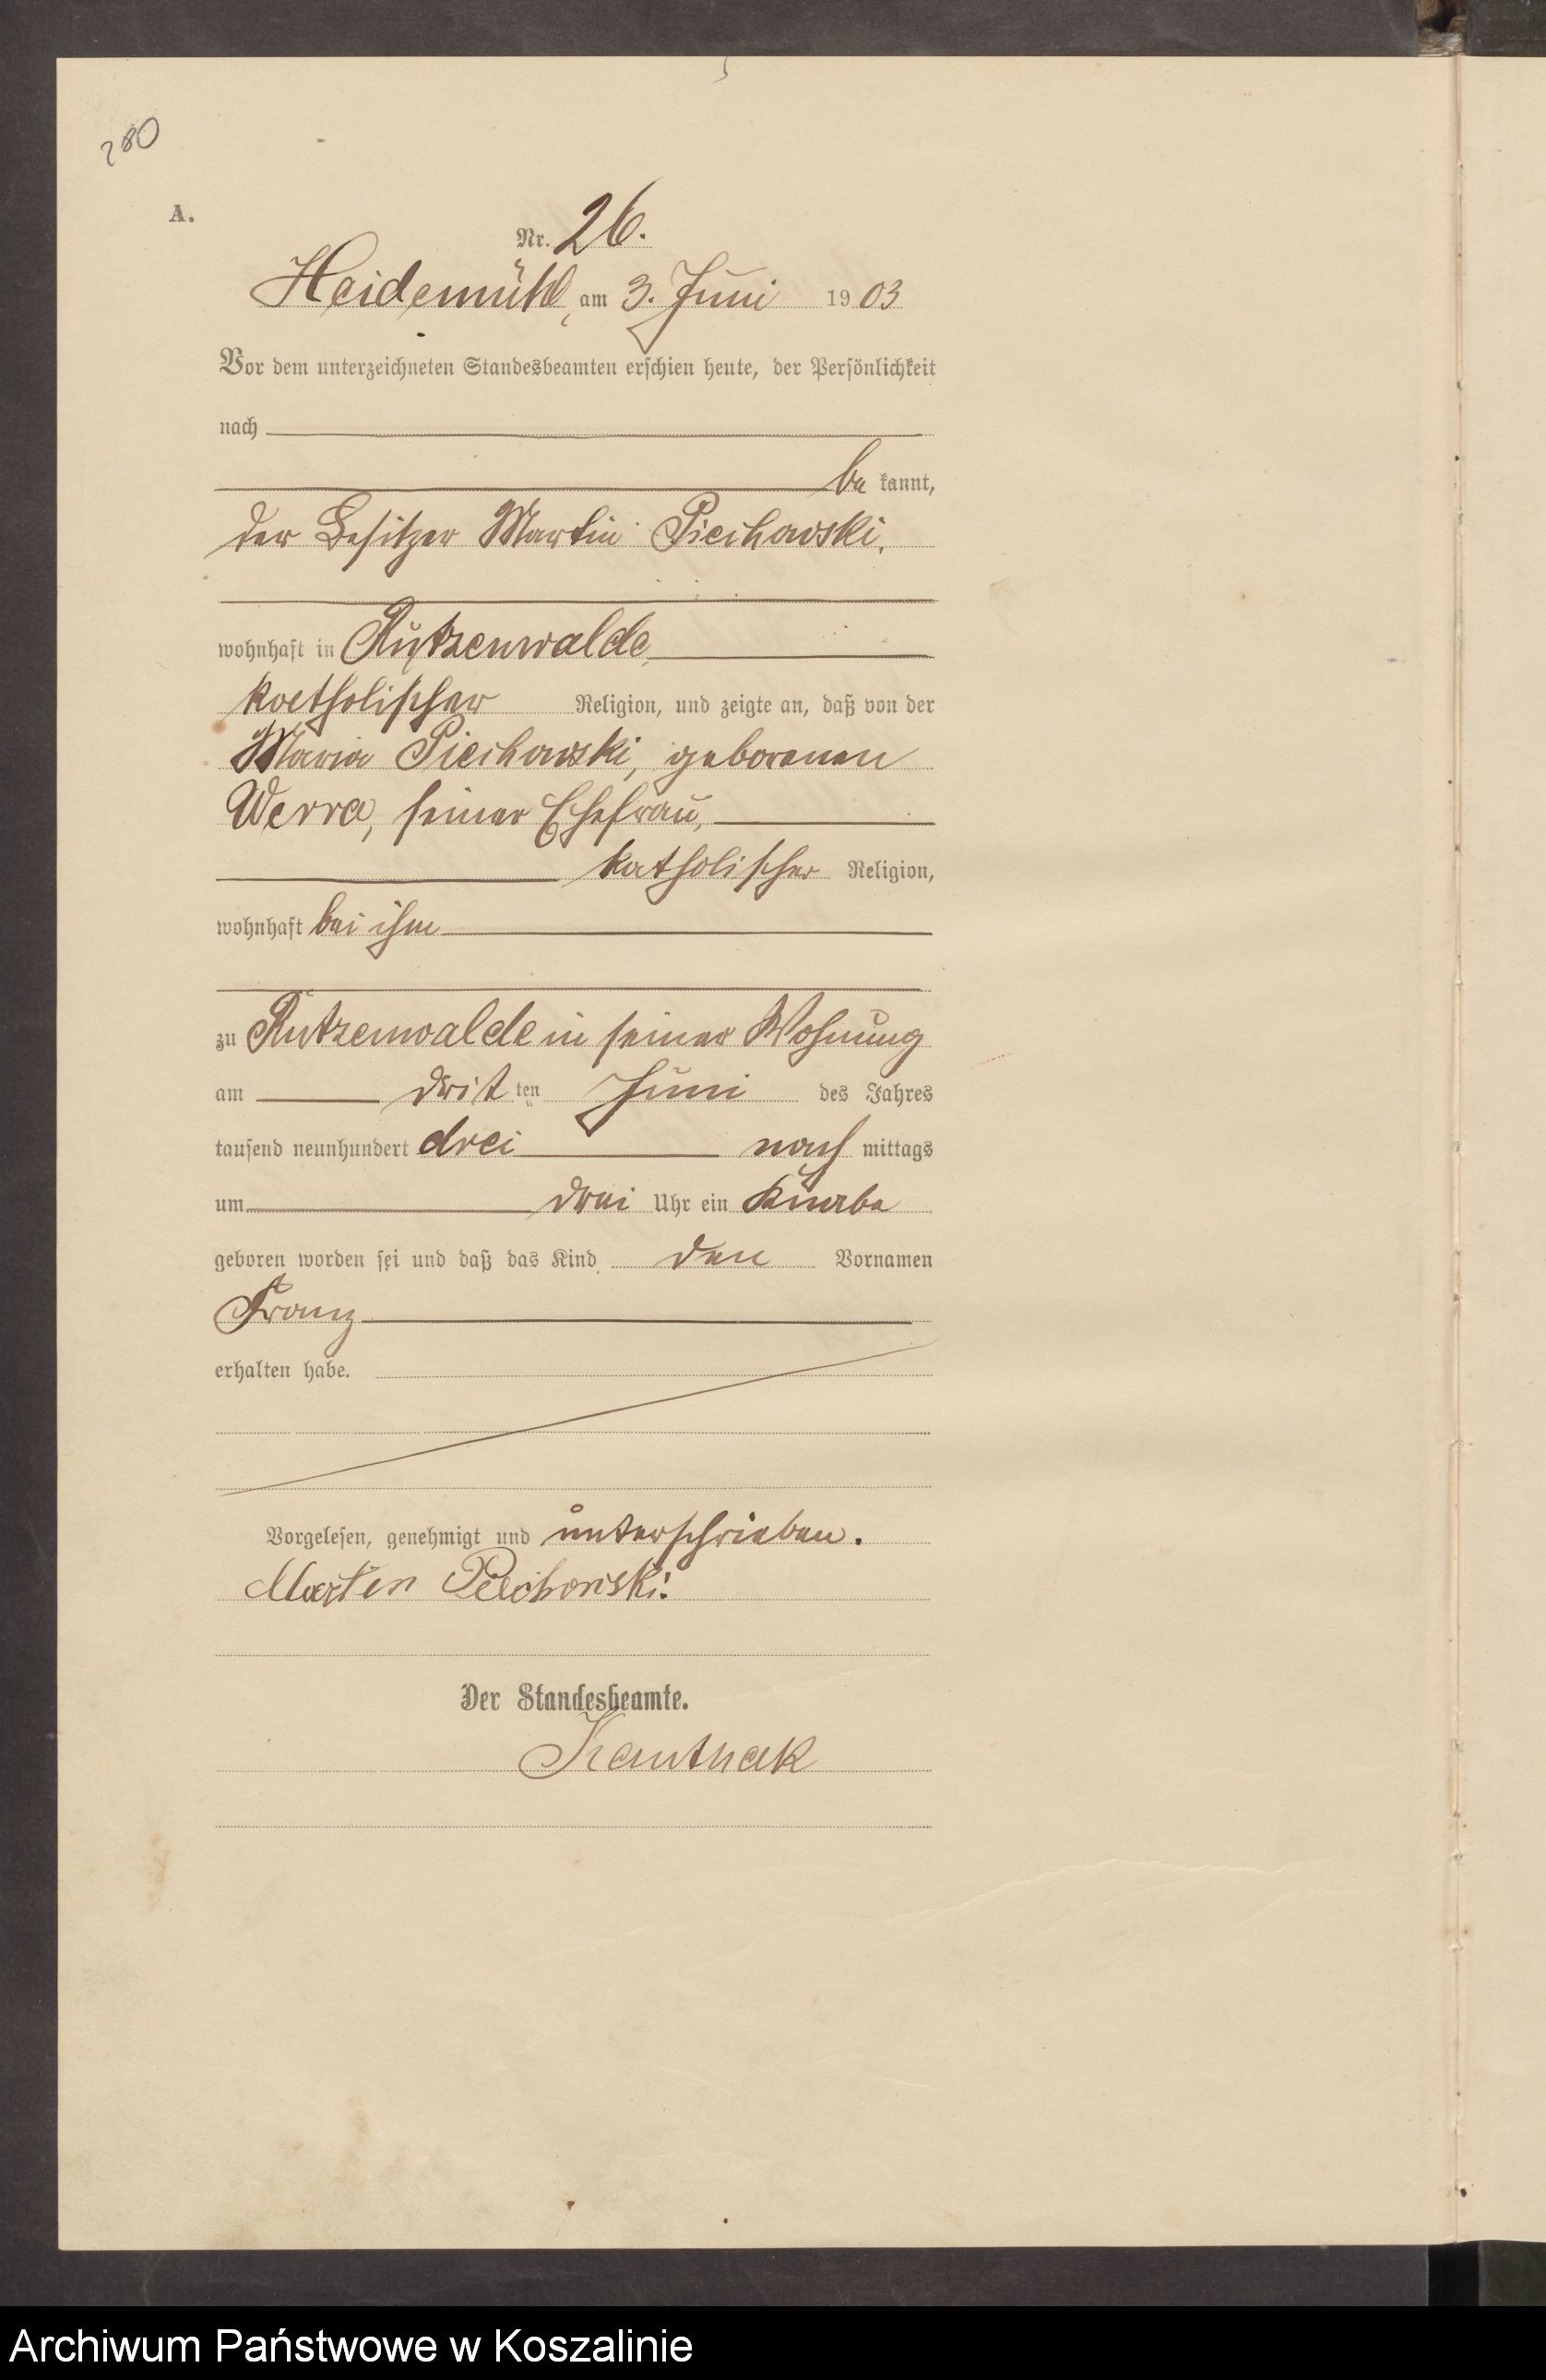 280
A.
Nr. 26.
Heidemühl, am 3. Juni 1903
Vor dem unterzeichneten Standesbeamten erschien heute, der Persönlichkeit
nach
be kannt,
der Besitzer Martin Piechowski,
wohnhaft in Rützenwalde,
katholischer Religion, und zeigte an, daß von der
Maria Piechowski, geborenen
Werra, seiner Ehefrau,
katholischer Religion,
wohnhaft bei ihm
zu Rützenwalde in seiner Wohnung
am drit ten Juni des Jahres
tausend neunhundert drei nach mittags
um drei Uhr ein Knabe
geboren worden sei und daß das Kind den Vornamen
Franz
erhalten habe.
Vorgelesen, genehmigt und unterschrieben.
Marten Piechowski.
Der Standesbeamte.
Kanthak
Archiwum Państwowe w Koszalinie